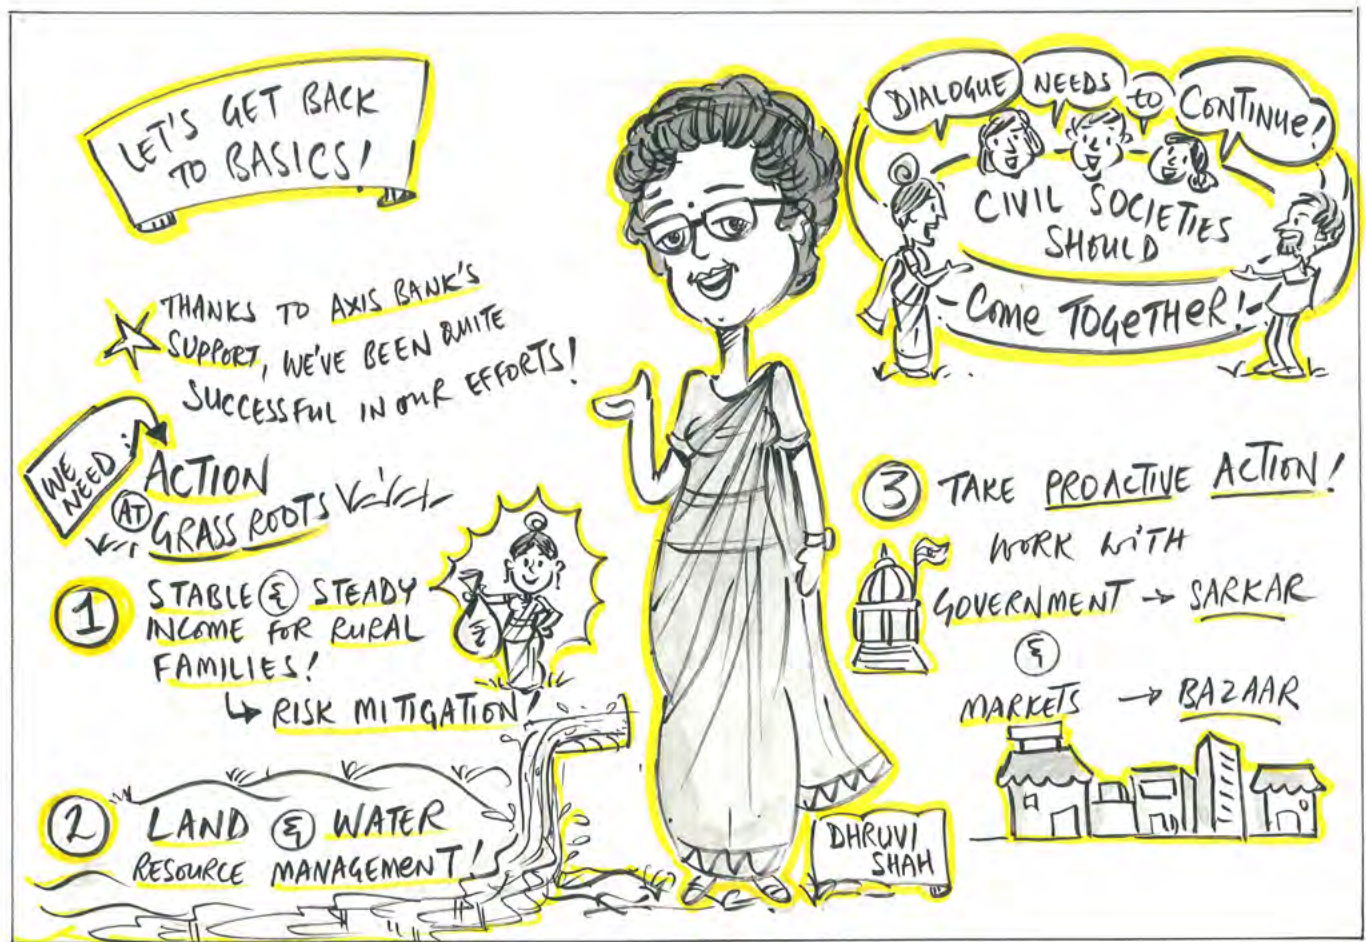 LET'S GET BACK
TO BASICS!
THANKS TO AXIS BANK'S
SUPPORT, WE'VE BEEN QUITE
SUCCESSFUL IN OUR EFFORTS!
WE
NEED:
ACTION
AT
GRASSROOTS
1 STABLE & STEADY
INCOME FOR RURAL
FAMILIES!
↳ RISK MITIGATION!
₹
2 LAND & WATER
RESOURCE MANAGEMENT!
DHRUVI
SHAH
DIALOGUE NEEDS to CONTINUE!
CIVIL SOCIETIES
SHOULD
COME TOGETHER!
3 TAKE PROACTIVE ACTION!
WORK WITH
GOVERNMENT → SARKAR
&
MARKETS → BAZAAR